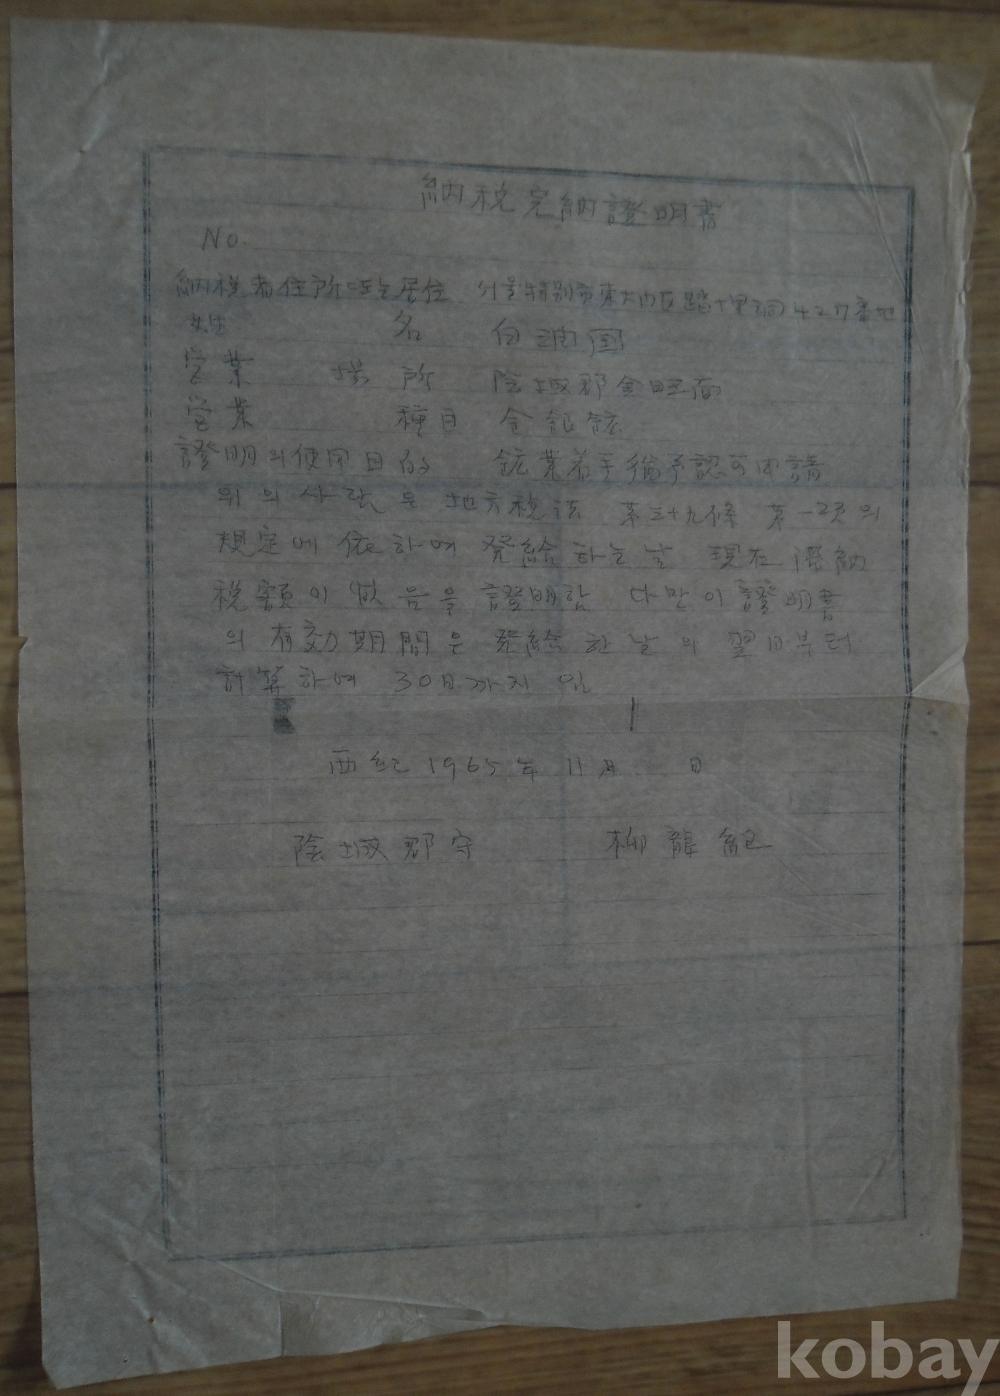 納税完納證明書
No.
納税者住所또는居住 서울特別市東大門区踏十里洞427番地
姓 名 白 国
営業 場所 陰城郡金旺面
営業 種目 金銀鉱
證明의使用目的 鉱業着手猶予認可申請
위의 사람은 地方税法 第三十九條 第一項의
規定에 依하여 発給하는날 現在 滞納
税額이 없음을 證明함 다만이 證明書
의 有効期間은 発給한날의 翌日부터
計算하여 30日까지임
西紀 1965年 11月 日
陰城郡守 柳龍
kobay